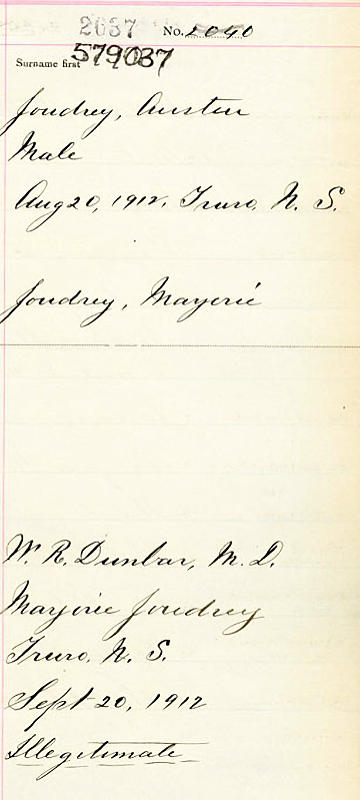 2037 No. 2040
Surname first 579037
Joudrey, Austin
Male
Aug 20, 1912, Truro, N. S.
Joudrey, Marjorie
W. R. Dunbar, M. D.
Marjorie Joudrey
Truro, N. S.
Sept 20, 1912
Illegitimate